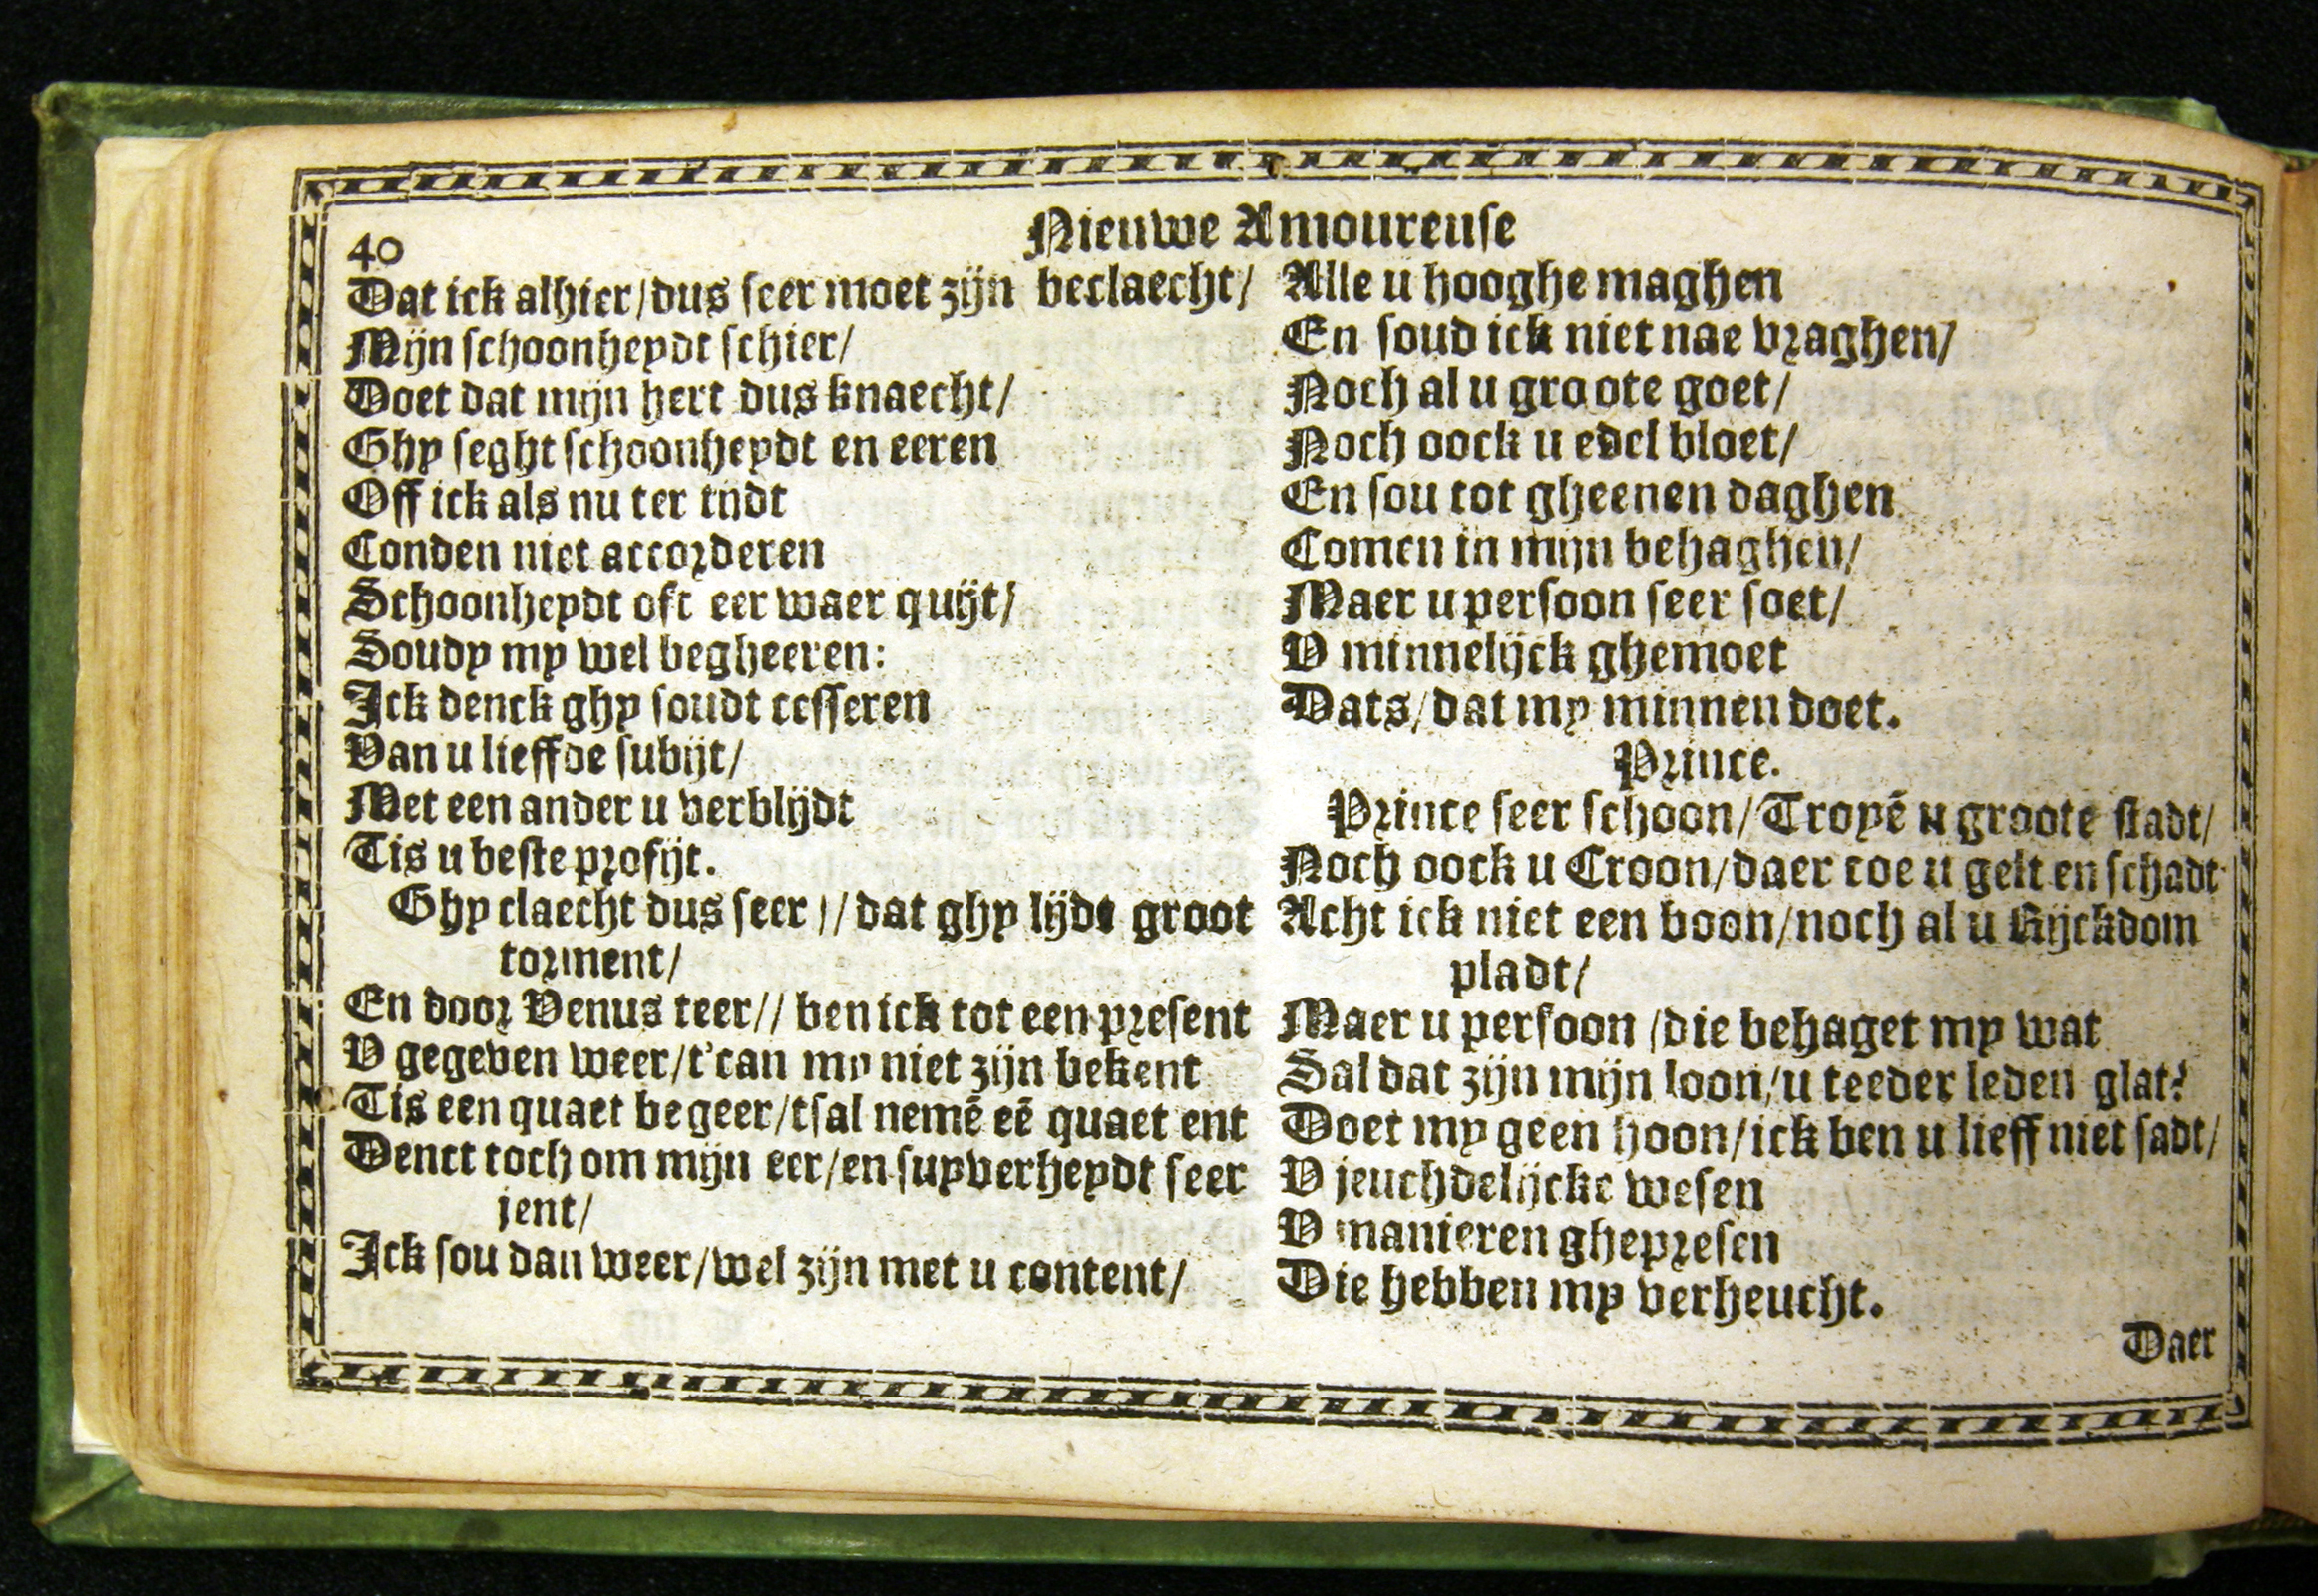 Nieuwe Amoureuse
40
Dat ick alhier/dus seer moet zijn beclaecht/
Mijn schoonheydt schier/
Doet dat mijn hert dus knaecht/
Ghy seght schoonheydt en eeren
Off ick als nu ter tijdt
Conden niet accorderen
Schoonheydt oft eer waer quijt/
Soudy my wel begheeren:
Ick denck ghy soudt cesseren
Van u lieffde subijt/
Met een ander u verblijdt
Tis u beste profijt.
Ghy claecht dus seer // dat ghy lijdt groot
torment/
En door Venus teer// ben ick tot een present
V gegeven weer/t'can my niet zijn bekent
Tis een quaet begeer/tsal nemē eē quaet ent
Denct toch om mijn eer/en suyverheydt seer
jent/
Ick sou dan weer/wel zijn met u content/
Alle u hooghe maghen
En soud ick niet nae vraghen/
Noch al u groote goet/
Noch oock u edel bloet/
En sou tot gheenen daghen
Comen in mijn behaghen/
Maer u persoon seer soet/
V minnelijck ghemoet
Dats/dat my minnen doet.
Prince.
Prince seer schoon/Troyē u groote stadt/
Noch oock u Croon/daer toe u gelt en schadt
Acht ick niet een boon/noch al u Rijckdom
pladt/
Maer u persoon /die behaget my wat
Sal dat zijn mijn loon/u teeder leden glat?
Doet my geen hoon/ick ben u lieff niet sadt/
V jeuchdelijcke wesen
V manieren ghepresen
Die hebben my verheucht.
Daer